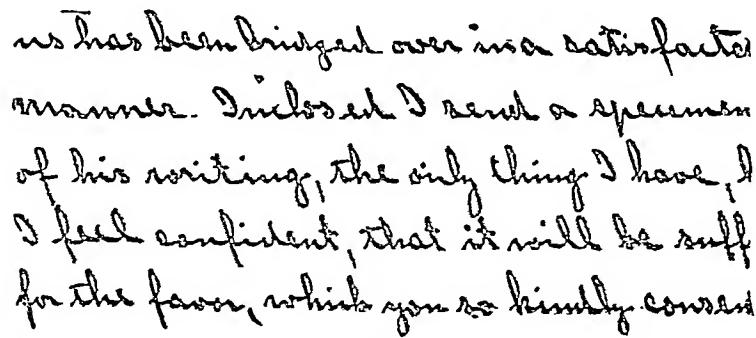 us has been bridged over in a satisfacto
manner. Inclosed I send a specimen
of his writing, the only thing I have, b
I feel confident, that it will be suff
for the favor, which you so kindly consen